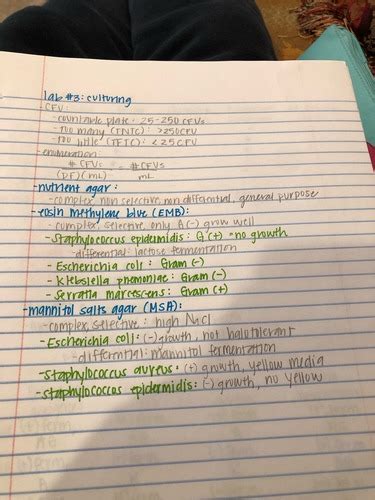 lab #3: culturing
- CFU:
- countable plate: 25-250 CFUs
- too many (TNTC): >250 CFU
- too little (TFTC): < 25 CFU
- enumeration:
# CFUs = # CFUs
(DF)(mL) mL
- nutrient agar:
- complex, non selective, non differential, general purpose
- eosin methylene blue (EMB):
- complex, selective, only (-) grow well
- Staphylococcus epidermidis: G(+) = no growth
- differential: lactose fermentation
- Escherichia coli: Gram (-)
- Klebsiella pnemoniae: Gram (-)
- Serratia marcescens: Gram (+)
- mannitol salts agar (MSA):
- complex, selective: high NaCl
- Escherichia coli: (-) growth, not halotolerant
- differntial: mannitol fermentation
- Staphylococcus aureus: (+) growth, yellow media
- staphylococcus epidermidis: (-) growth, no yellow